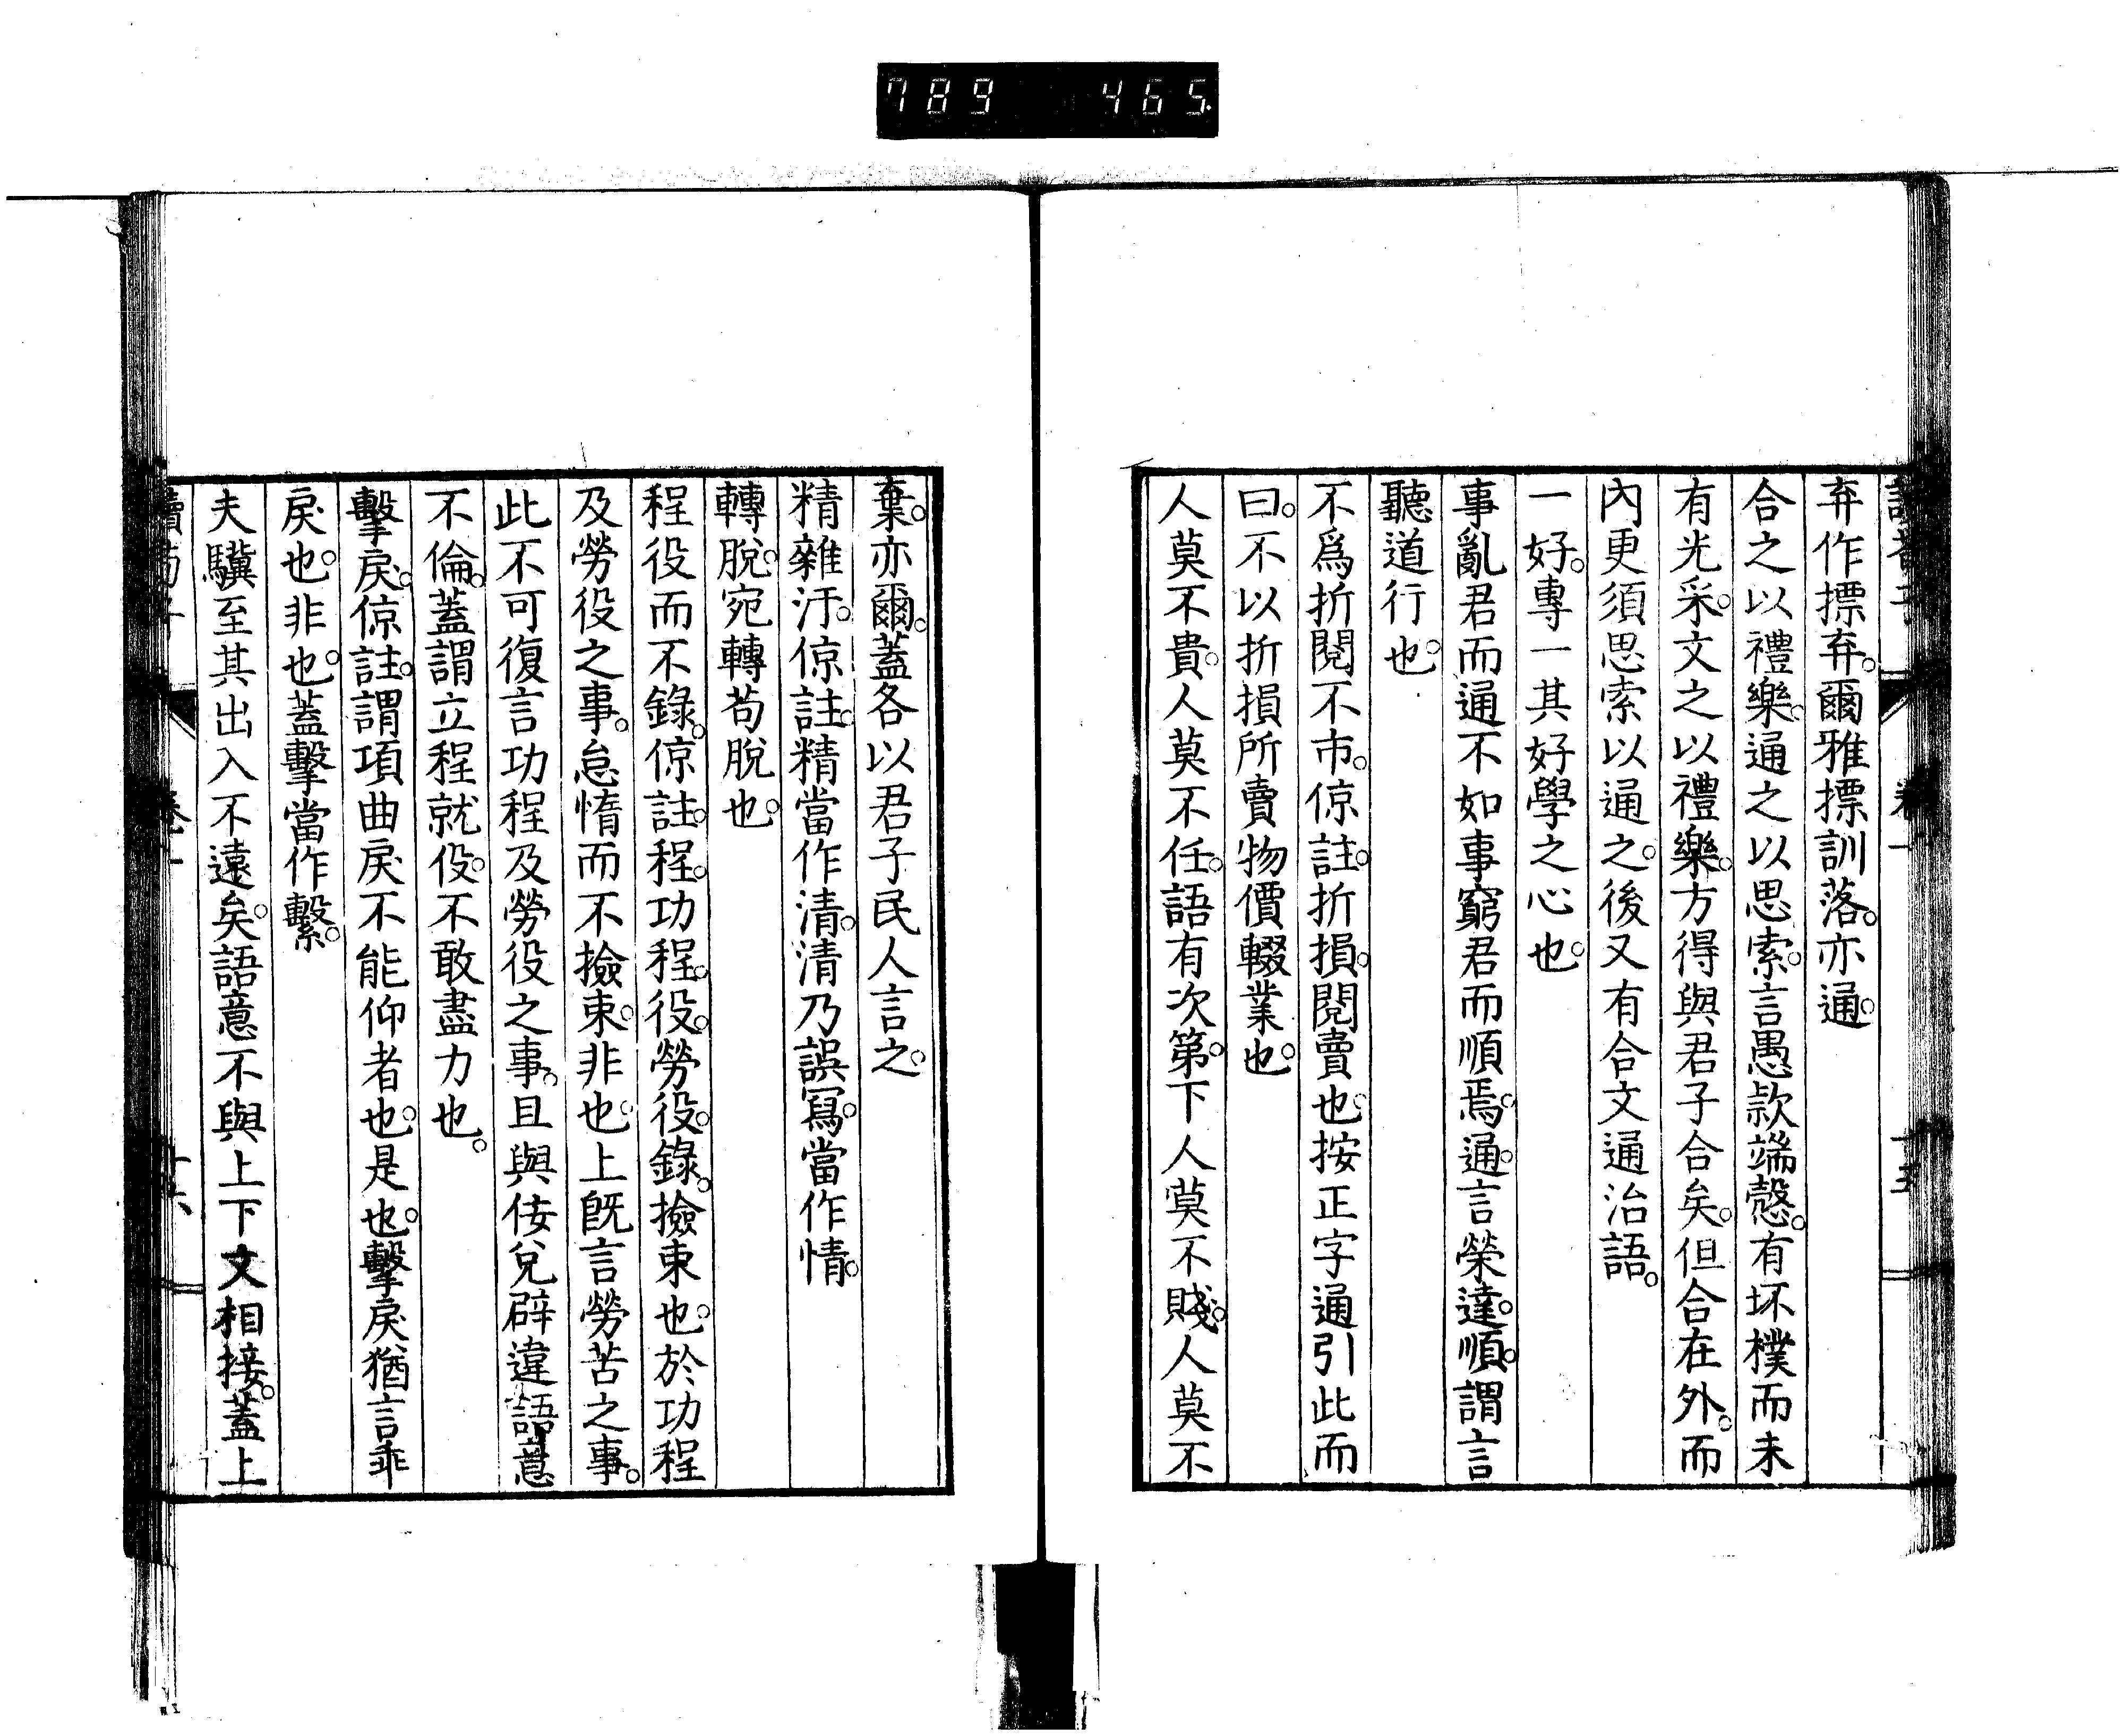 789 465
弃作摽弃。爾雅摽訓落。亦通。
合之以禮樂。通之以思索。言愚款端慤。有坏樸而未
有光采。文之以禮樂。方得與君子合矣。但合在外。而
內更須思索以通之。後又有合文通治語。
一好。專一其好學之心也。
事亂君而通不如事窮君而順焉。通。言榮達。順。謂言
聽道行也。
不爲折閱不市。倞註。折損。閱賣也。按正字通引此而
曰。不以折損所賣物價輟業也。
人莫不貴。人莫不任。語有次第。下人莫不賤。人莫不
棄。亦爾。蓋各以君子民人言之。
精雜汙。倞註。精當作清。清乃誤寫。當作情。
轉脫。宛轉苟脫也。
程役而不錄。倞註。程。功程。役。勞役。錄。撿束也。於功程
及勞役之事。怠惰而不撿束。非也。上旣言勞苦之事。
此不可復言功程及勞役之事。且與佞兌辟違語意
不倫。蓋謂立程就役。不敢盡力也。
擊戾。倞註。謂項曲戾不能仰者也。是也。擊戾猶言乖
戾也。非也。蓋擊當作繫。
夫驥至其出入不遠矣。語意不與上下文相接。蓋上